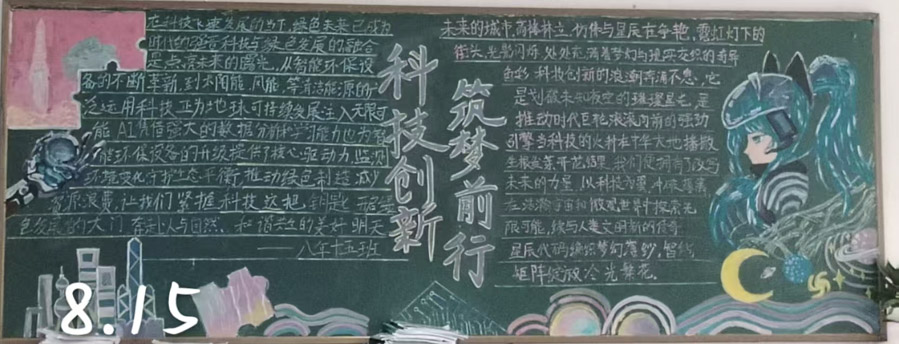 在科技飞速发展的当下,绿色未来已成为
时代的强音科技与绿色发展的融合
是点亮未来的曙光。从智能环保设
备的不断革新,到太阳能,风能,等清洁能源的广
泛运用科技正为地球可持续发展注入无限可
能AI凭借强大的数据分析和学习能力也为智
能环保设备的升级提供了核心驱动力,监测
环境变化守护生态平衡,推动绿色制造减少
资源浪费,让我们紧握科技这把钥匙
色发展的大门奔赴人与自然、和谐共生的美好明天
——八年十五班
科技创新
筑梦前行
未来的城市,高楼林立,仿佛与星辰在争艳,霓虹灯下的
街头,光影闪烁,处处充满着梦幻与现实交织的奇异
色彩,科技创新的浪潮奔涌不息,它
是划破未知夜空的璀璨星光,是
推动时代巨轮滚滚向前的强劲
引擎当科技的火种在华夏大地播撒
生根发芽开花结果,我们便拥有了改写
未来的力量,以科技为翼,冲破
在浩瀚宇宙和微观世界中探索无
限可能,续写人类文明新的传奇
星辰代码编织梦幻
矩阵绽放冷光繁花。
8.15